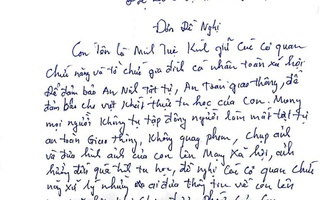 Đơn Đề Nghị
Con tên là Minh Tuệ Kính gửi Các cơ quan
chức năng và tổ chức gia đình cá nhân toàn xã hội
Để đảm bảo An Ninh trật tự, An Toàn giao thông, để
đảm bảo cho việc khất thực tu học của Con. Mong
mọi người Không tụ tập đông người làm mất trật tự
an toàn Giao thông, Không quay phim, chụp ảnh
và đưa hình ảnh của con lên Mạng Xã hội, ảnh
hưởng đến quá trình tu học, đề nghị Các cơ quan chức
năng xử lý những ai đưa thông tin về con lên